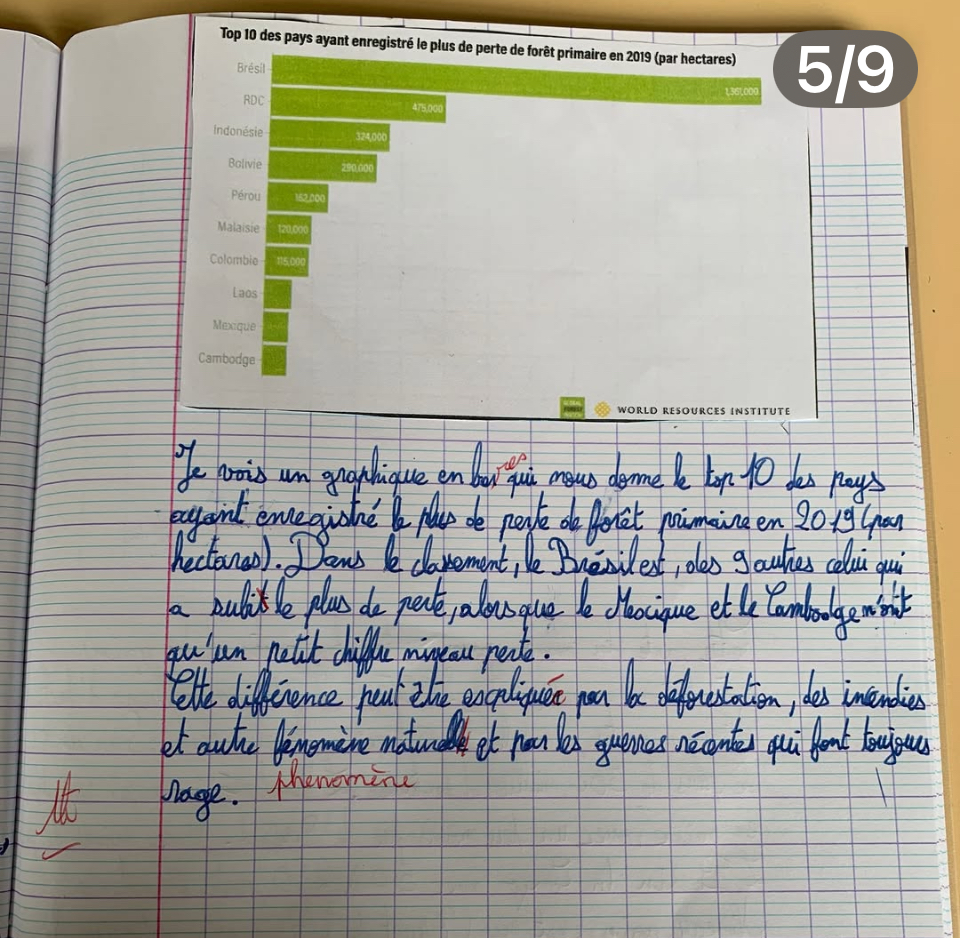 Top 10 des pays ayant enregistré le plus de perte de forêt primaire en 2019 (par hectares)
5/9
Brésil 1,361,000
RDC 475,000
Indonésie 324,000
Bolivie 290,000
Pérou 162,000
Malaisie 120,000
Colombie 115,000
Laos
Mexique
Cambodge
GLOBAL FOREST WATCH
WORLD RESOURCES INSTITUTE
res
Je vois un graphique en bar qui nous donne le top 10 des pays
ayant enregistré le plus de perte de forêt primaire en 2019 (par
hectares). Dans le classement, le Brésil est, des 9 autres celui qui
a subit le plus de perte, alors que le Mexique et le Cambodge n'ont
qu'un petit chiffre niveau perte.
Cette différence peut être expliquée par la déforestation, des incendies
et autre fénomène naturel et par les guerres récentes qui font toujours
rage. phenomène